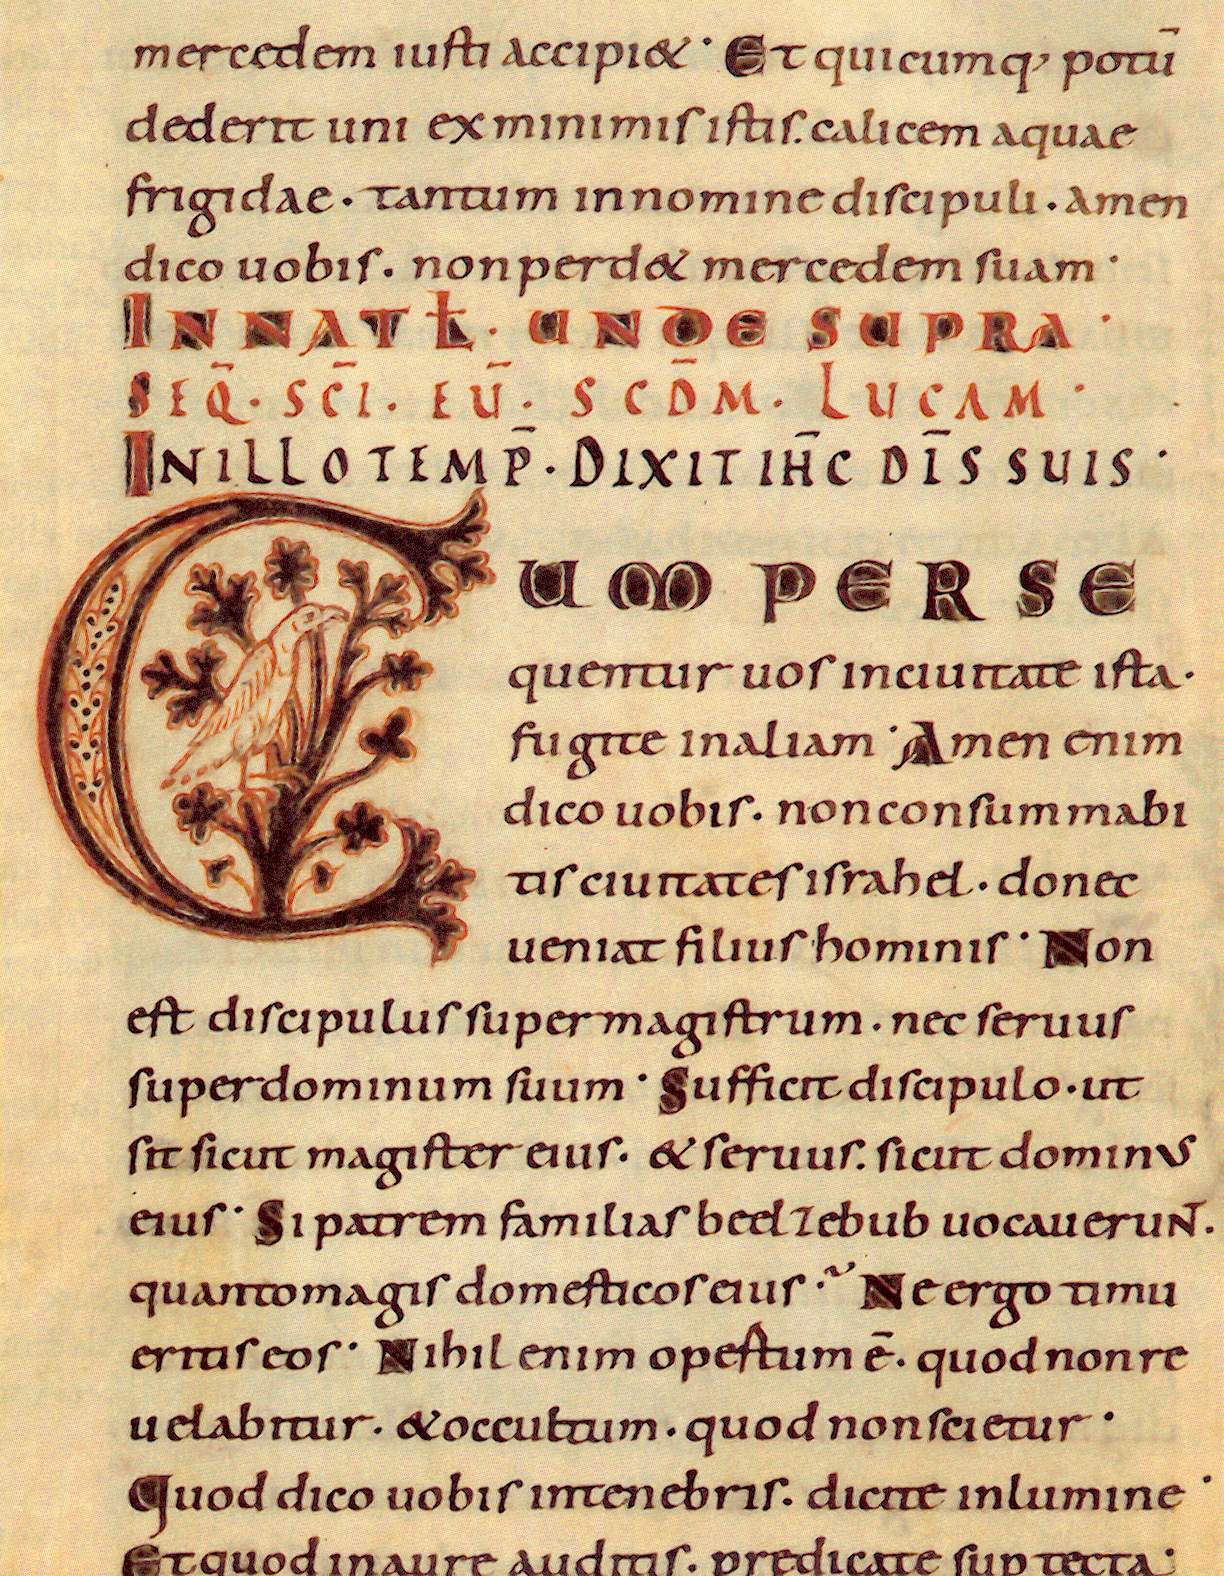 mercedem iusti accipi&· Et quicumq; potū
dederit uni ex minimis istis. calicem aquae
frigidae· tantum innomine discipuli· amen
dico uobis. non perd& mercedem suam·
IN NAT Ł· UNDE SUPRA·
SEQ̄· SC̄I. EŪ· SCD̄M· LUCAM·
IN ILLO TEMP̄· DIXIT IH̄C DĪS SUIS·
CUM PERSE
quentur uos inciuitate ista·
fugite inaliam· Amen enim
dico uobis· non consummabi
tis ciuitates israhel· donec
ueniat filius hominis· Non
est discipulus super magistrum· nec seruus
super dominum suum· Sufficit discipulo· ut
sit sicut magister eius· & seruus. sicut dominus
eius· Si patrem familias beelzebub uocauerunt.
quantomagis domesticos eius· Ne ergo timu
eritis eos· Nihil enim opestum ē· quod non re
uelabitur· & occultum· quod non scietur·
Quod dico uobis intenebris· dicite inlumine·
Et quod inaure auditis· predicate sup tecta·